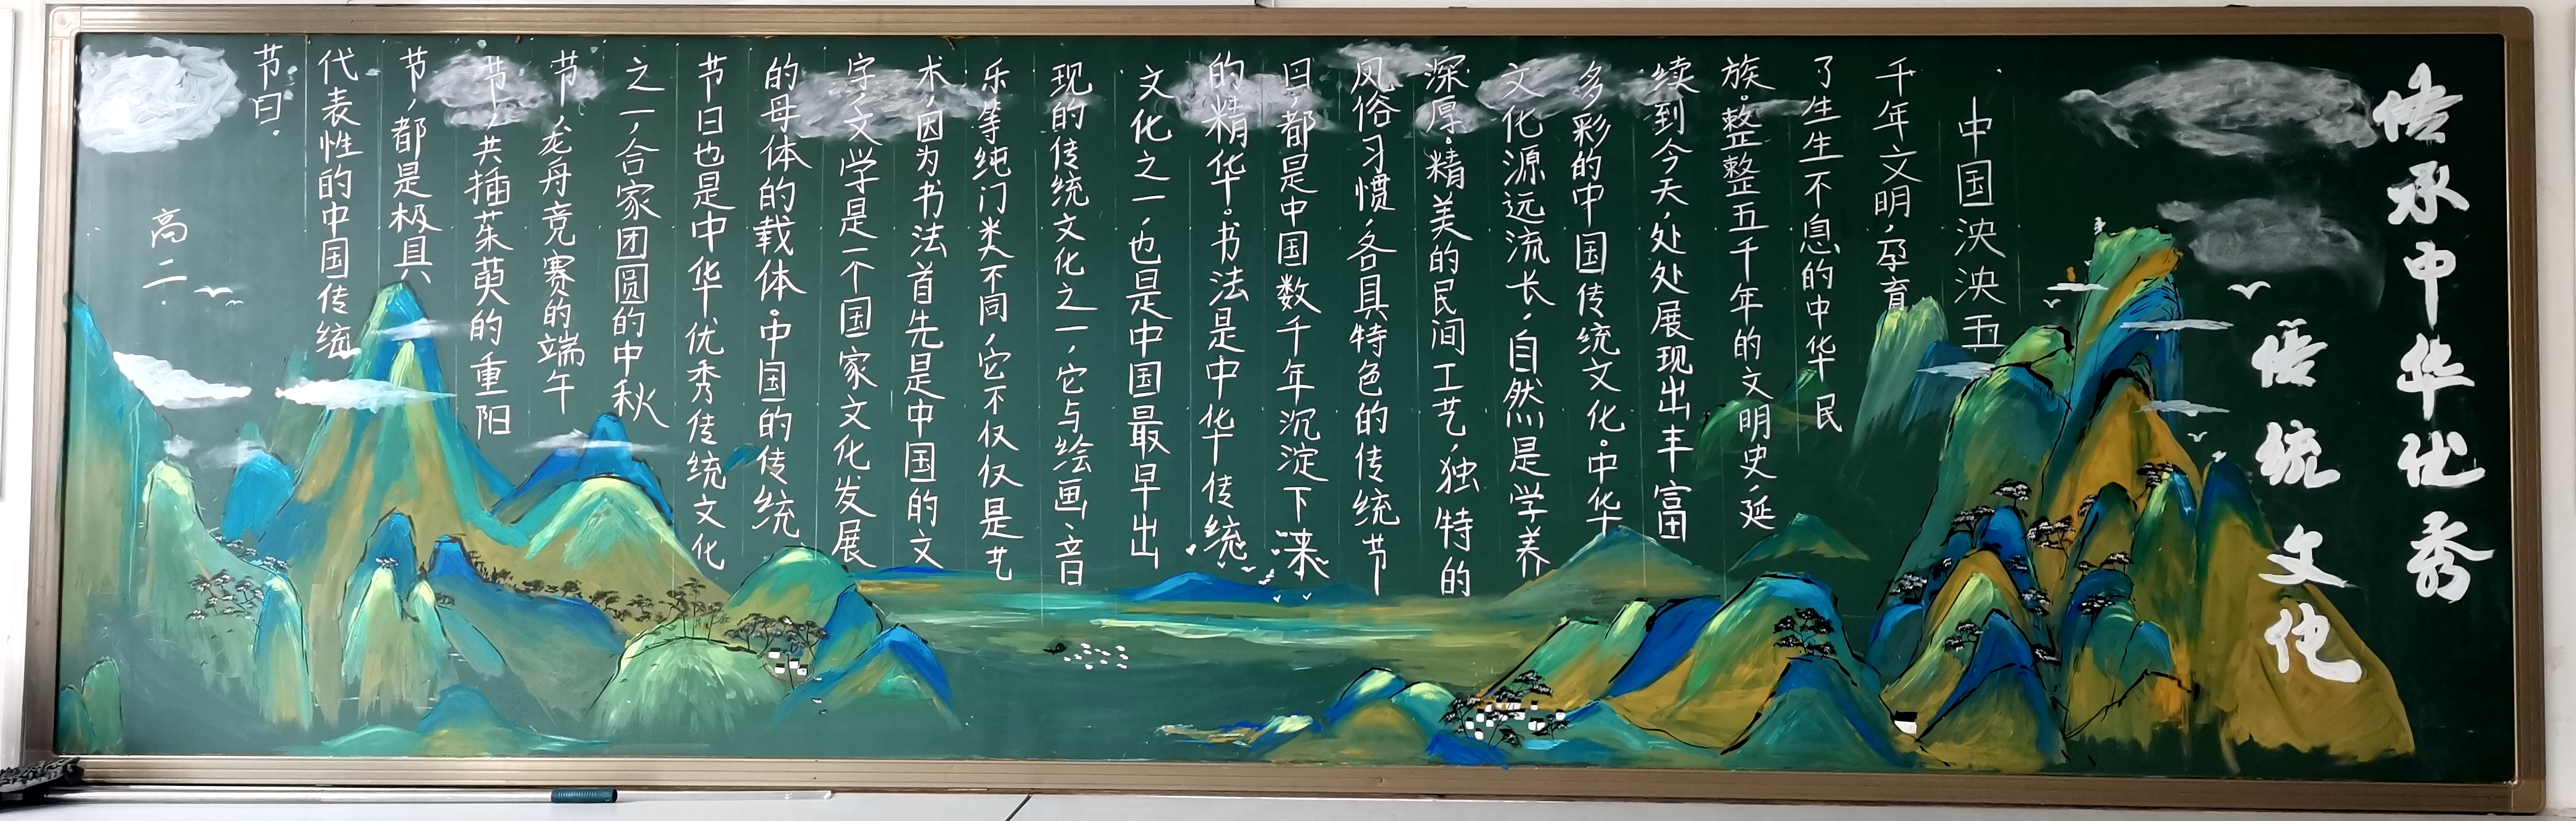 传承中华优秀
传统文化
中国泱泱五
千年文明,孕育
了生生不息的中华民
族。整整五千年的文明史,延
续到今天,处处展现出丰富
多彩的中国传统文化。中华
文化源远流长,自然是学养
深厚。精美的民间工艺,独特的
风俗习惯,各具特色的传统节
日,都是中国数千年沉淀下来
的精华。书法是中华传统
文化之一,也是中国最早出
现的传统文化之一,它与绘画、音
乐等纯门类不同,它不仅仅是艺
术,因为书法首先是中国的文
字,文学是一个国家文化发展
的母体的载体。中国的传统
节日也是中华优秀传统文化
之一,合家团圆的中秋
节,龙舟竞赛的端午
节,共插茱萸的重阳
节,都是极具
代表性的中国传统
节日.
高二.